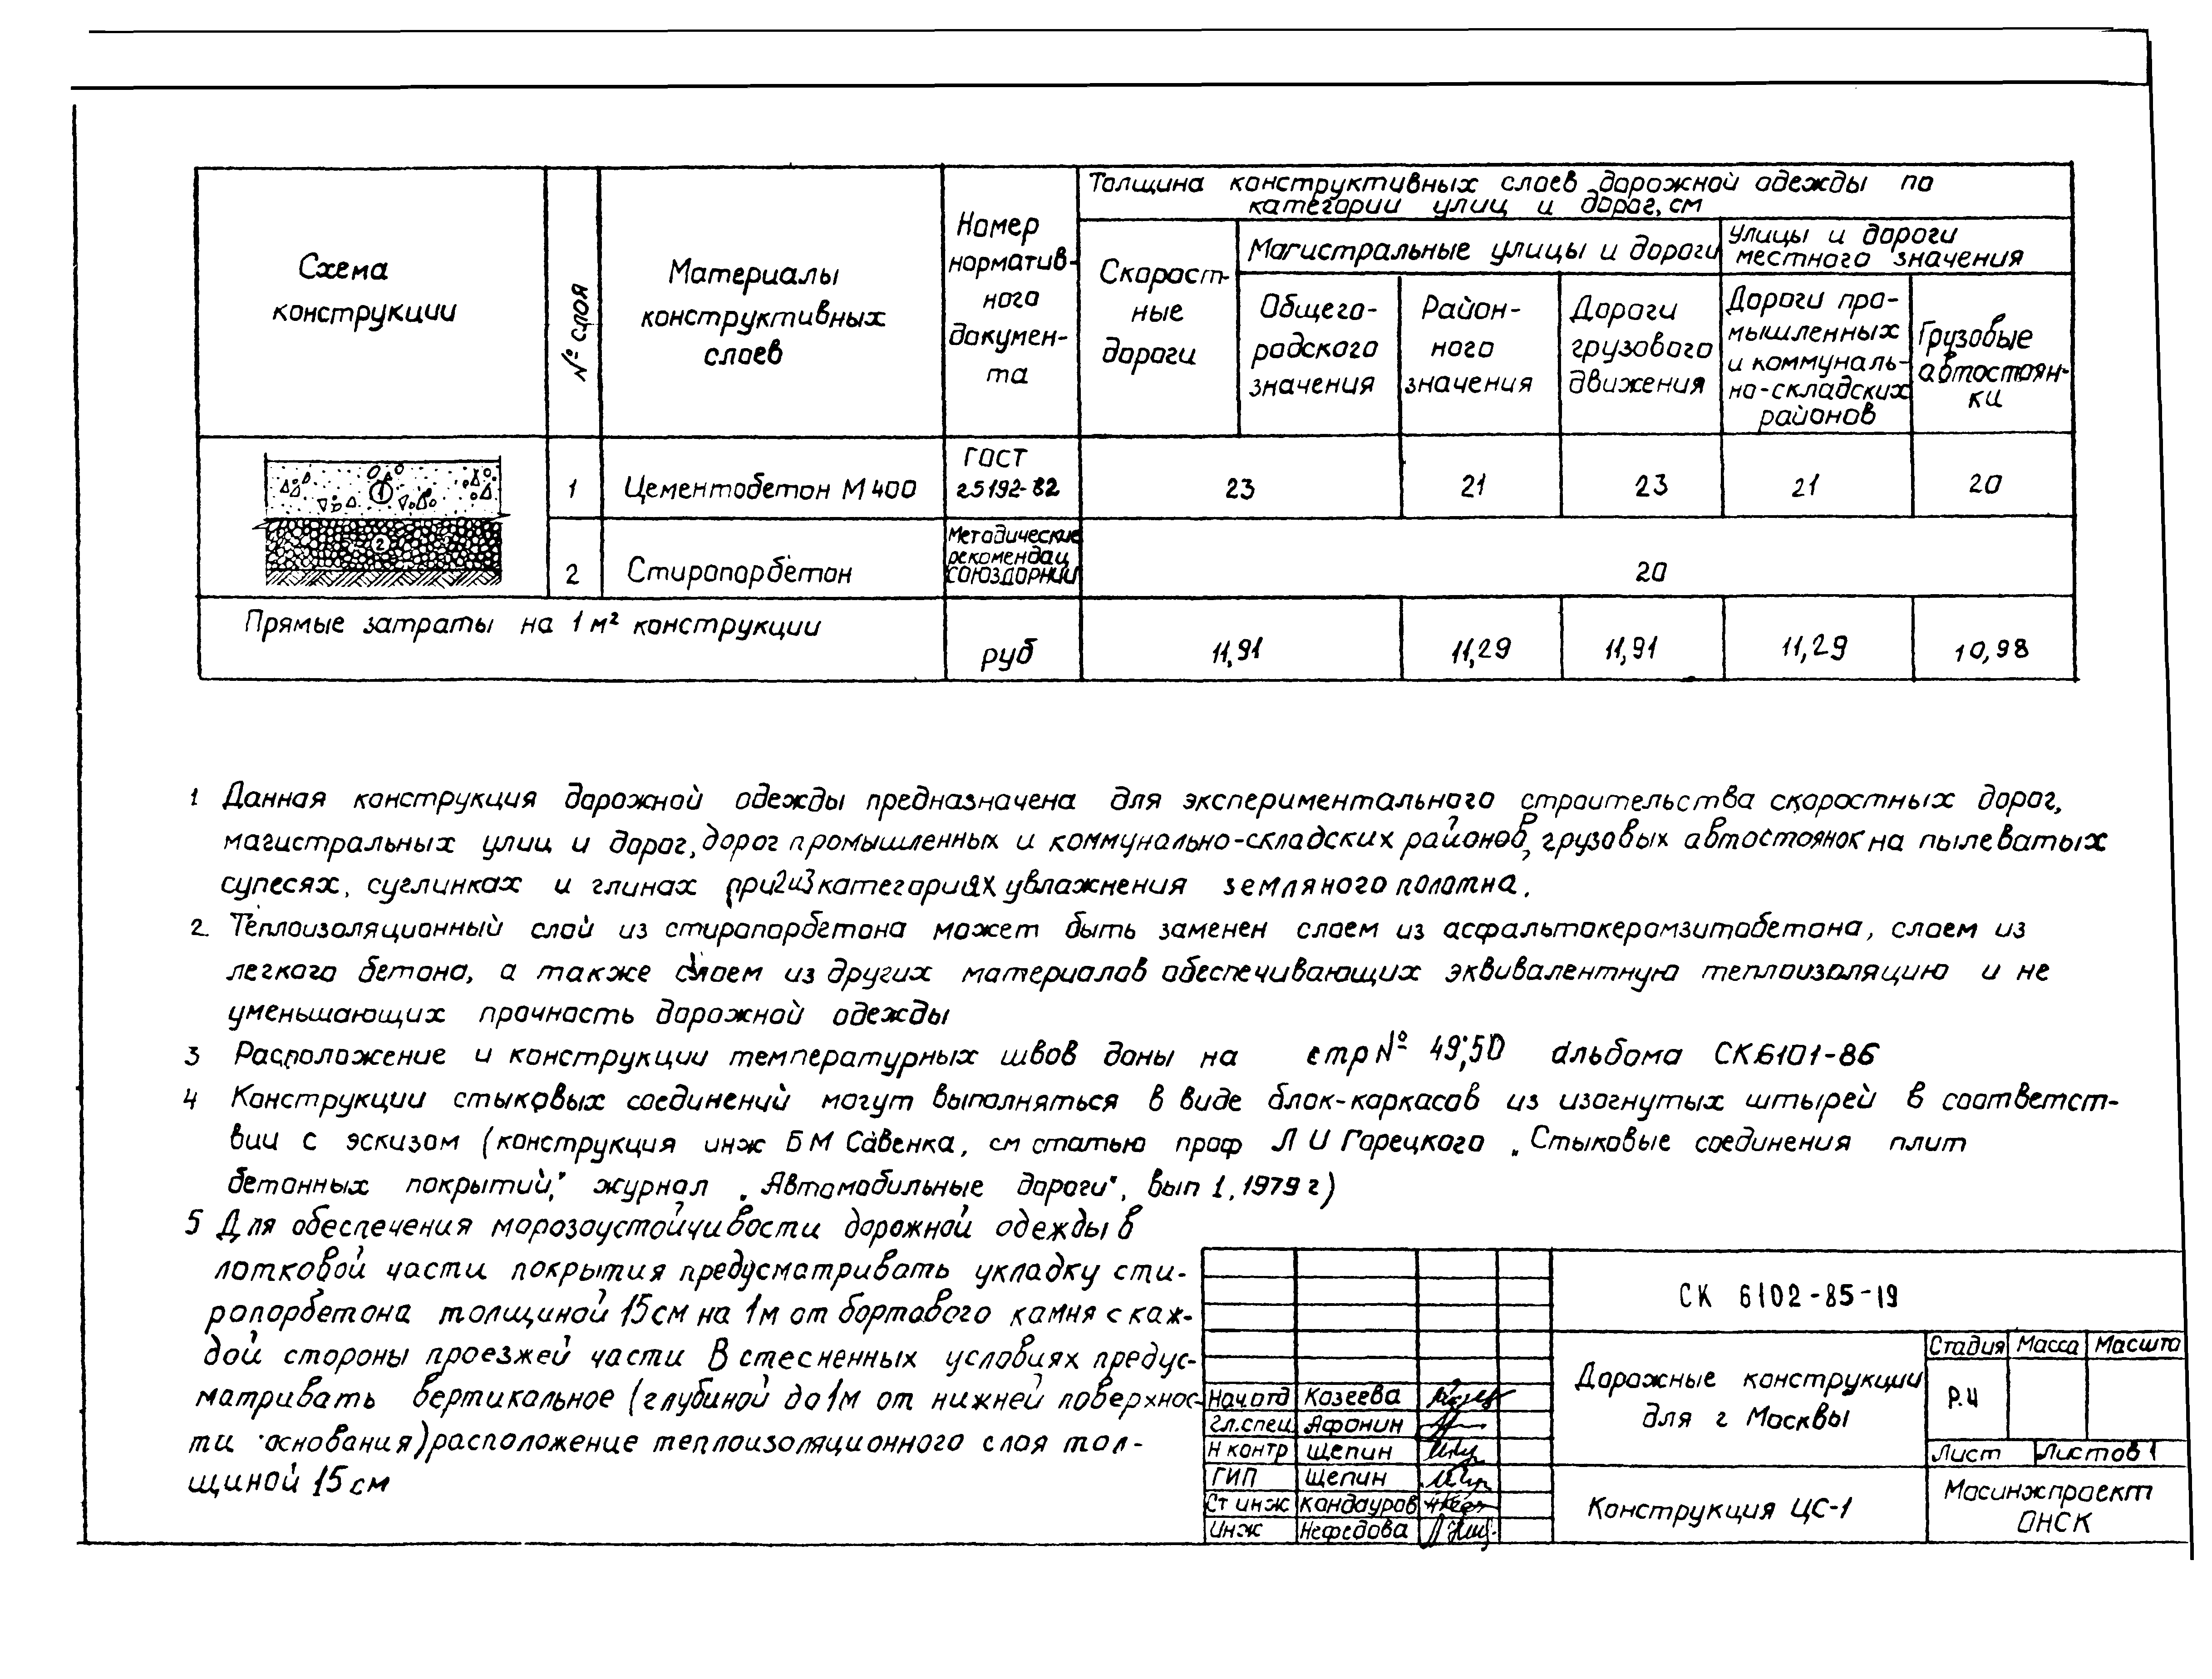 Толщина конструктивных слоев дорожной одежды по
категории улиц и дорог, см
Схема
конструкции
№ слоя
Материалы
конструктивных
слоев
Номер
норматив-
ного
докумен-
та
Скорост-
ные
дороги
Магистральные улицы и дороги
Улицы и дороги
местного значения
Общего-
родского
значения
Район-
ного
значения
Дороги
грузового
движения
Дороги про-
мышленных
и коммуналь-
но-складских
районов
Грузовые
автостоян-
ки
1
2
1 Цементобетон М400
ГОСТ
25192-82
23 21 23 21 20
2 Стиропорбетон
Методические
рекомендац
СОЮЗДОРНИИ
20
Прямые затраты на 1 м² конструкции
руб 11,91 11,29 11,91 11,29 10,98
1 Данная конструкция дорожной одежды предназначена для экспериментального строительства скоростных дорог,
магистральных улиц и дорог, дорог промышленных и коммунально-складских районов, грузовых автостоянок на пылеватых
супесях, суглинках и глинах при 2 и 3 категориях увлажнения земляного полотна.
2. Теплоизоляционный слой из стиропорбетона может быть заменен слоем из асфальтокерамзитобетона, слоем из
легкого бетона, а также слоем из других материалов обеспечивающих эквивалентную теплоизоляцию и не
уменьшающих прочность дорожной одежды
3 Расположение и конструкции температурных швов даны на стр № 49; 50 альбома СК6101-86
4 Конструкции стыковых соединений могут выполняться в виде блок-каркасов из изогнутых штырей в соответст-
вии с эскизом (конструкция инж Б М Савенка, см статью проф Л И Горецкого „Стыковые соединения плит
бетонных покрытий," журнал „Автомобильные дороги", вып 1, 1979 г)
5 Для обеспечения морозоустойчивости дорожной одежды в
лотковой части покрытия предусматривать укладку сти-
ропорбетона толщиной 15 см на 1м от бортового камня с каж-
дой стороны проезжей части В стесненных условиях предус-
матривать вертикальное (глубиной до 1м от нижней поверхнос-
ти основания) расположение теплоизоляционного слоя тол-
щиной 15 см
СК 6102-85-19
Дорожные конструкции
для г Москвы
Стадия Масса Масшта
Р.Ч
Лист Листов 1
Нач отд Козеева
Гл.спец Афонин
Н контр Щепин
ГИП Щепин
Ст инж Кандауров
Инж Нефедова
Конструкция ЦС-1
Мосинжпроект
ОНСК